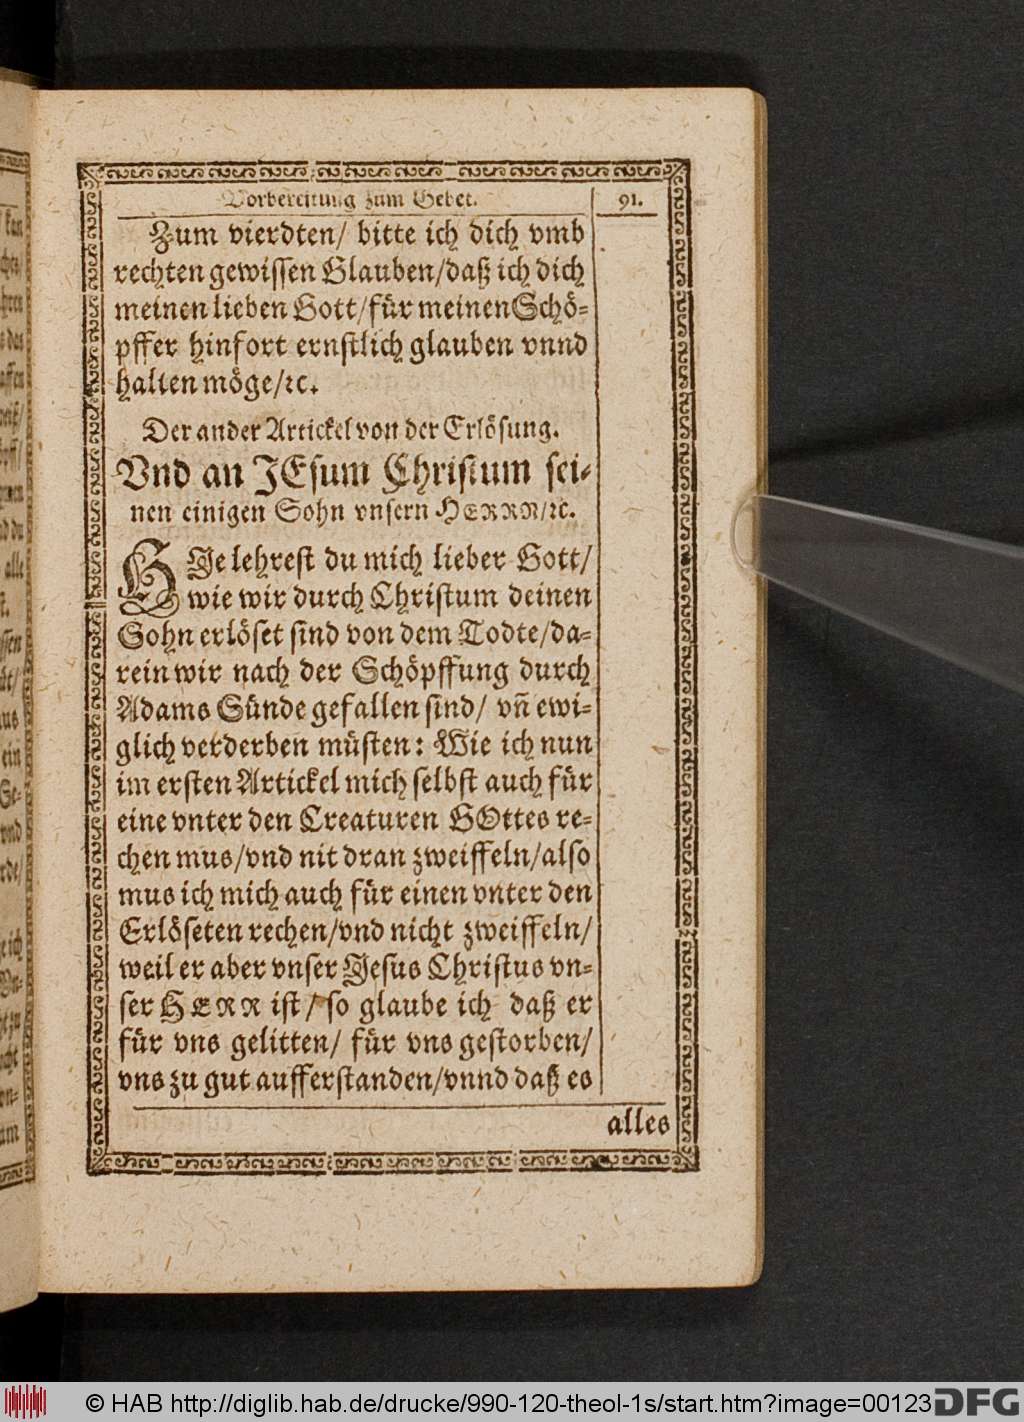 Vorbereitung zum Gebet. 91.
Zum vierdten/ bitte ich dich vmb
rechten gewissen Glauben/daß ich dich
meinen lieben Gott/für meinen Schö-
pffer hinfort ernstlich glauben vnnd
halten möge/ꝛc.
Der ander Artickel von der Erlösung.
Vnd an JEsum Christum sei-
nen einigen Sohn vnsern HERRN/ꝛc.
HJe lehrest du mich lieber Gott/
wie wir durch Christum deinen
Sohn erlöset sind von dem Todte/da-
rein wir nach der Schöpffung durch
Adams Sünde gefallen sind/ vñ ewi-
glich verderben müsten: Wie ich nun
im ersten Artickel mich selbst auch für
eine vnter den Creaturen GOttes re-
chen mus/vnd nit dran zweiffeln/also
mus ich mich auch für einen vnter den
Erlöseten rechen/vnd nicht zweiffeln/
weil er aber vnser Jesus Christus vn-
ser HERR ist/ so glaube ich daß er
für vns gelitten/ für vns gestorben/
vns zu gut aufferstanden/vnnd daß es
alles
© HAB http://diglib.hab.de/drucke/990-120-theol-1s/start.htm?image=00123
DFG